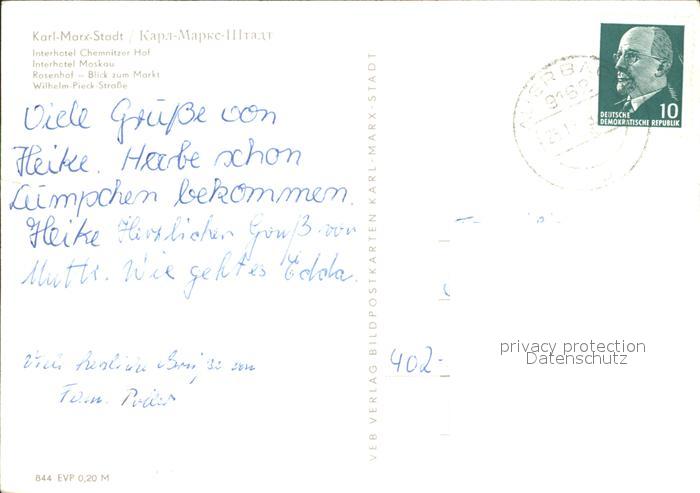 Karl-Marx-Stadt / Карл-Маркс-Штадт
Interhotel Chemnitzer Hof
Interhotel Moskau
Rosenhof – Blick zum Markt
Wilhelm-Pieck-Straße
Viele Grüße von
Heike. Habe schon
Lümpchen bekommen.
Heike Herzlichen Gruß von
Mutti. Wie geht es Edda.
Viele herzliche Grüße von
Fam.
844 EVP 0,20 M
VEB VERLAG BILDPOSTKARTEN KARL-MARX-STADT
AUERBACH
9162
10
DEUTSCHE
DEMOKRATISCHE REPUBLIK
402-
privacy protection
Datenschutz